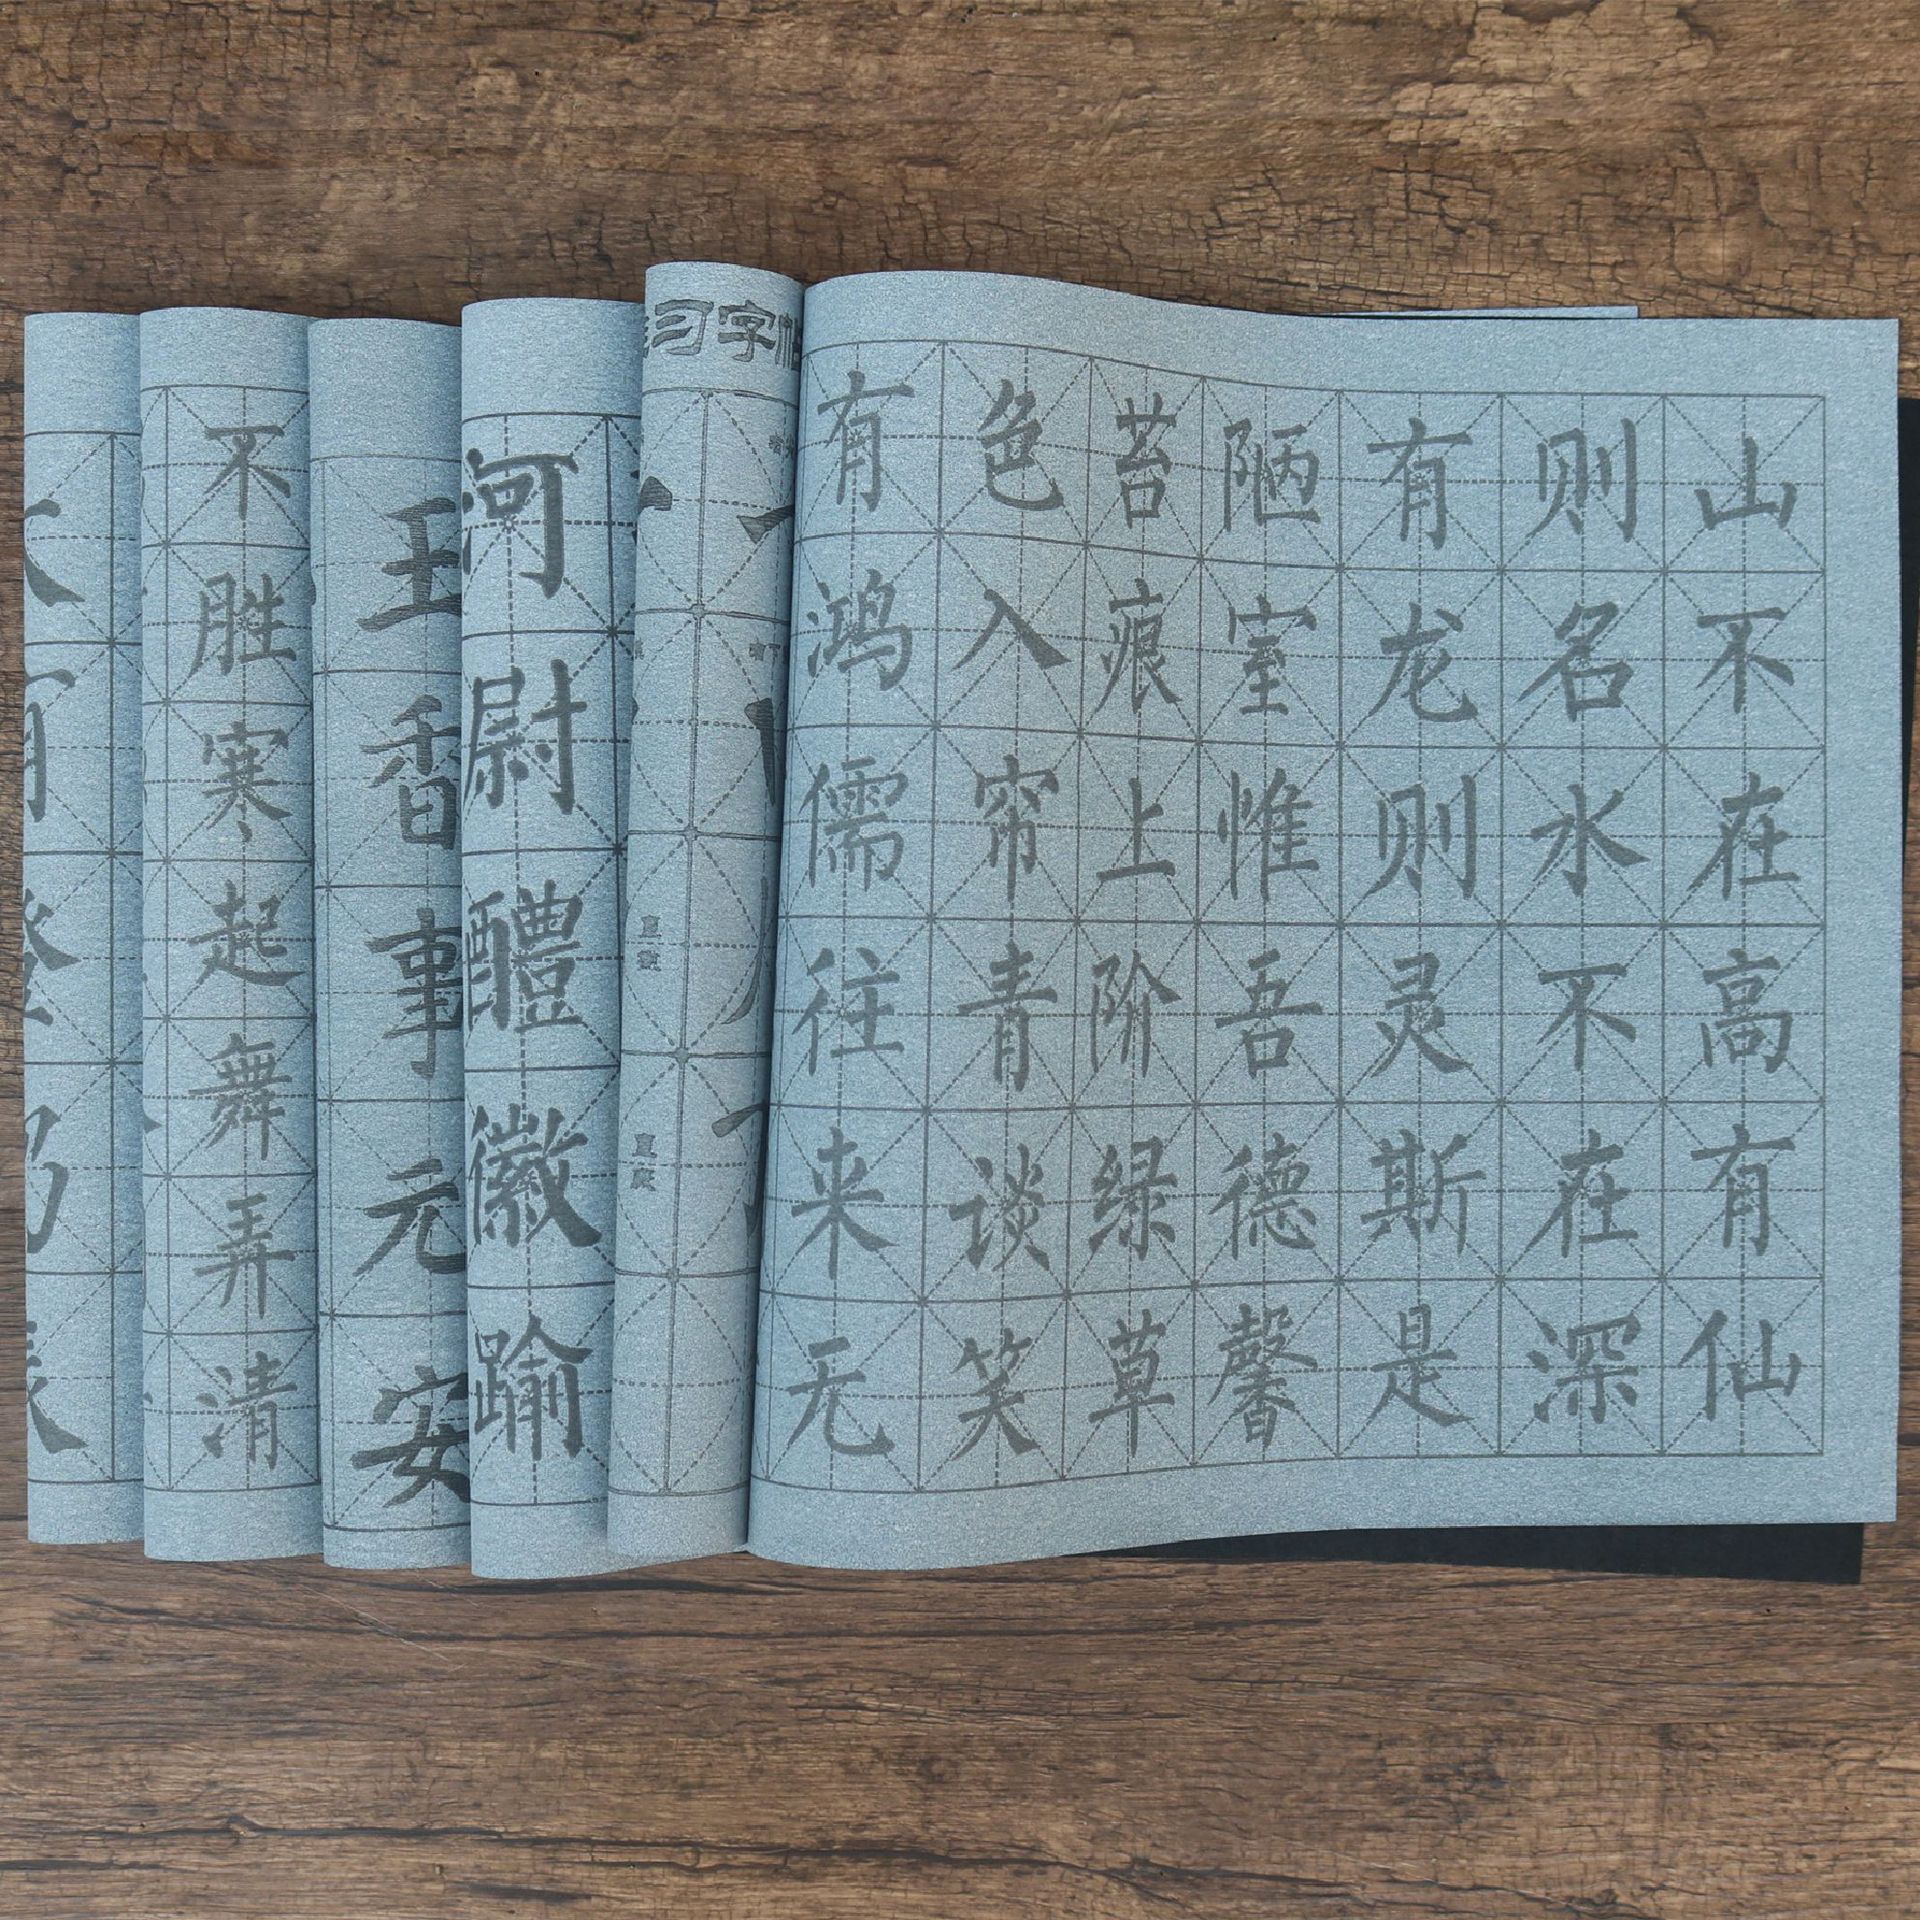 山不在高有仙
则名水不在深
有龙则灵斯是
陋室惟吾德馨
苔痕上阶绿草
色入帘青谈笑
有鸿儒往来无
习字帖
河尉醴徽踰
王香事元安
不胜寒起舞弄清